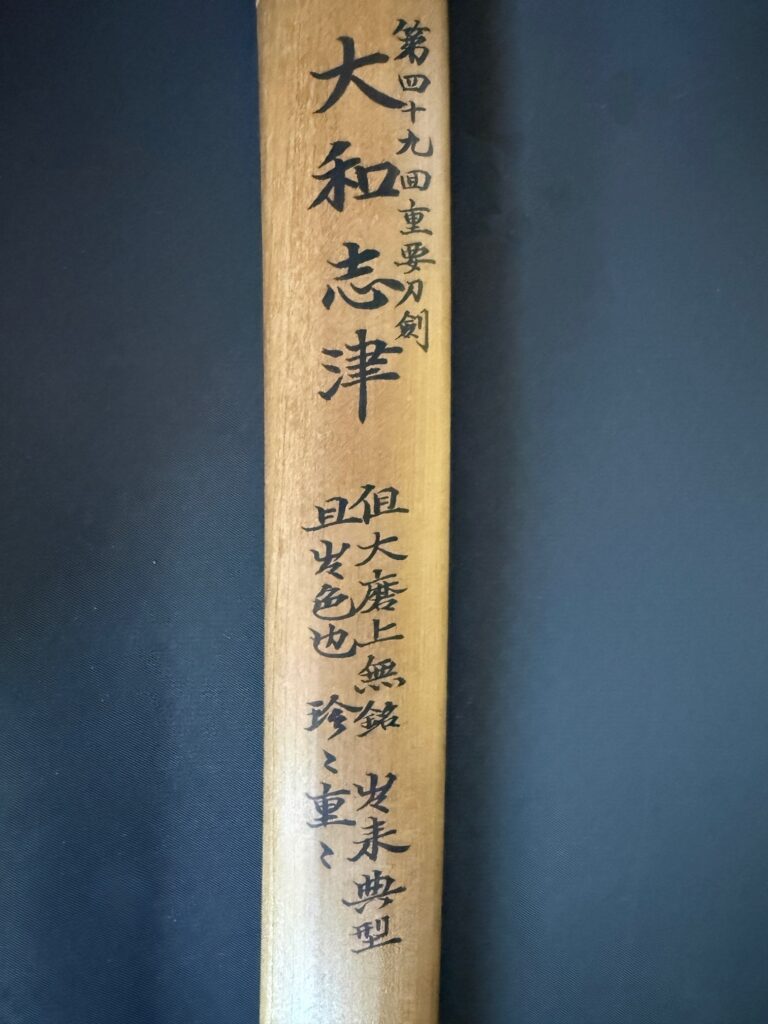 第四十九回重要刀剣
大和志津
但大磨上無銘 出来典型
且出色也 珍〻重〻